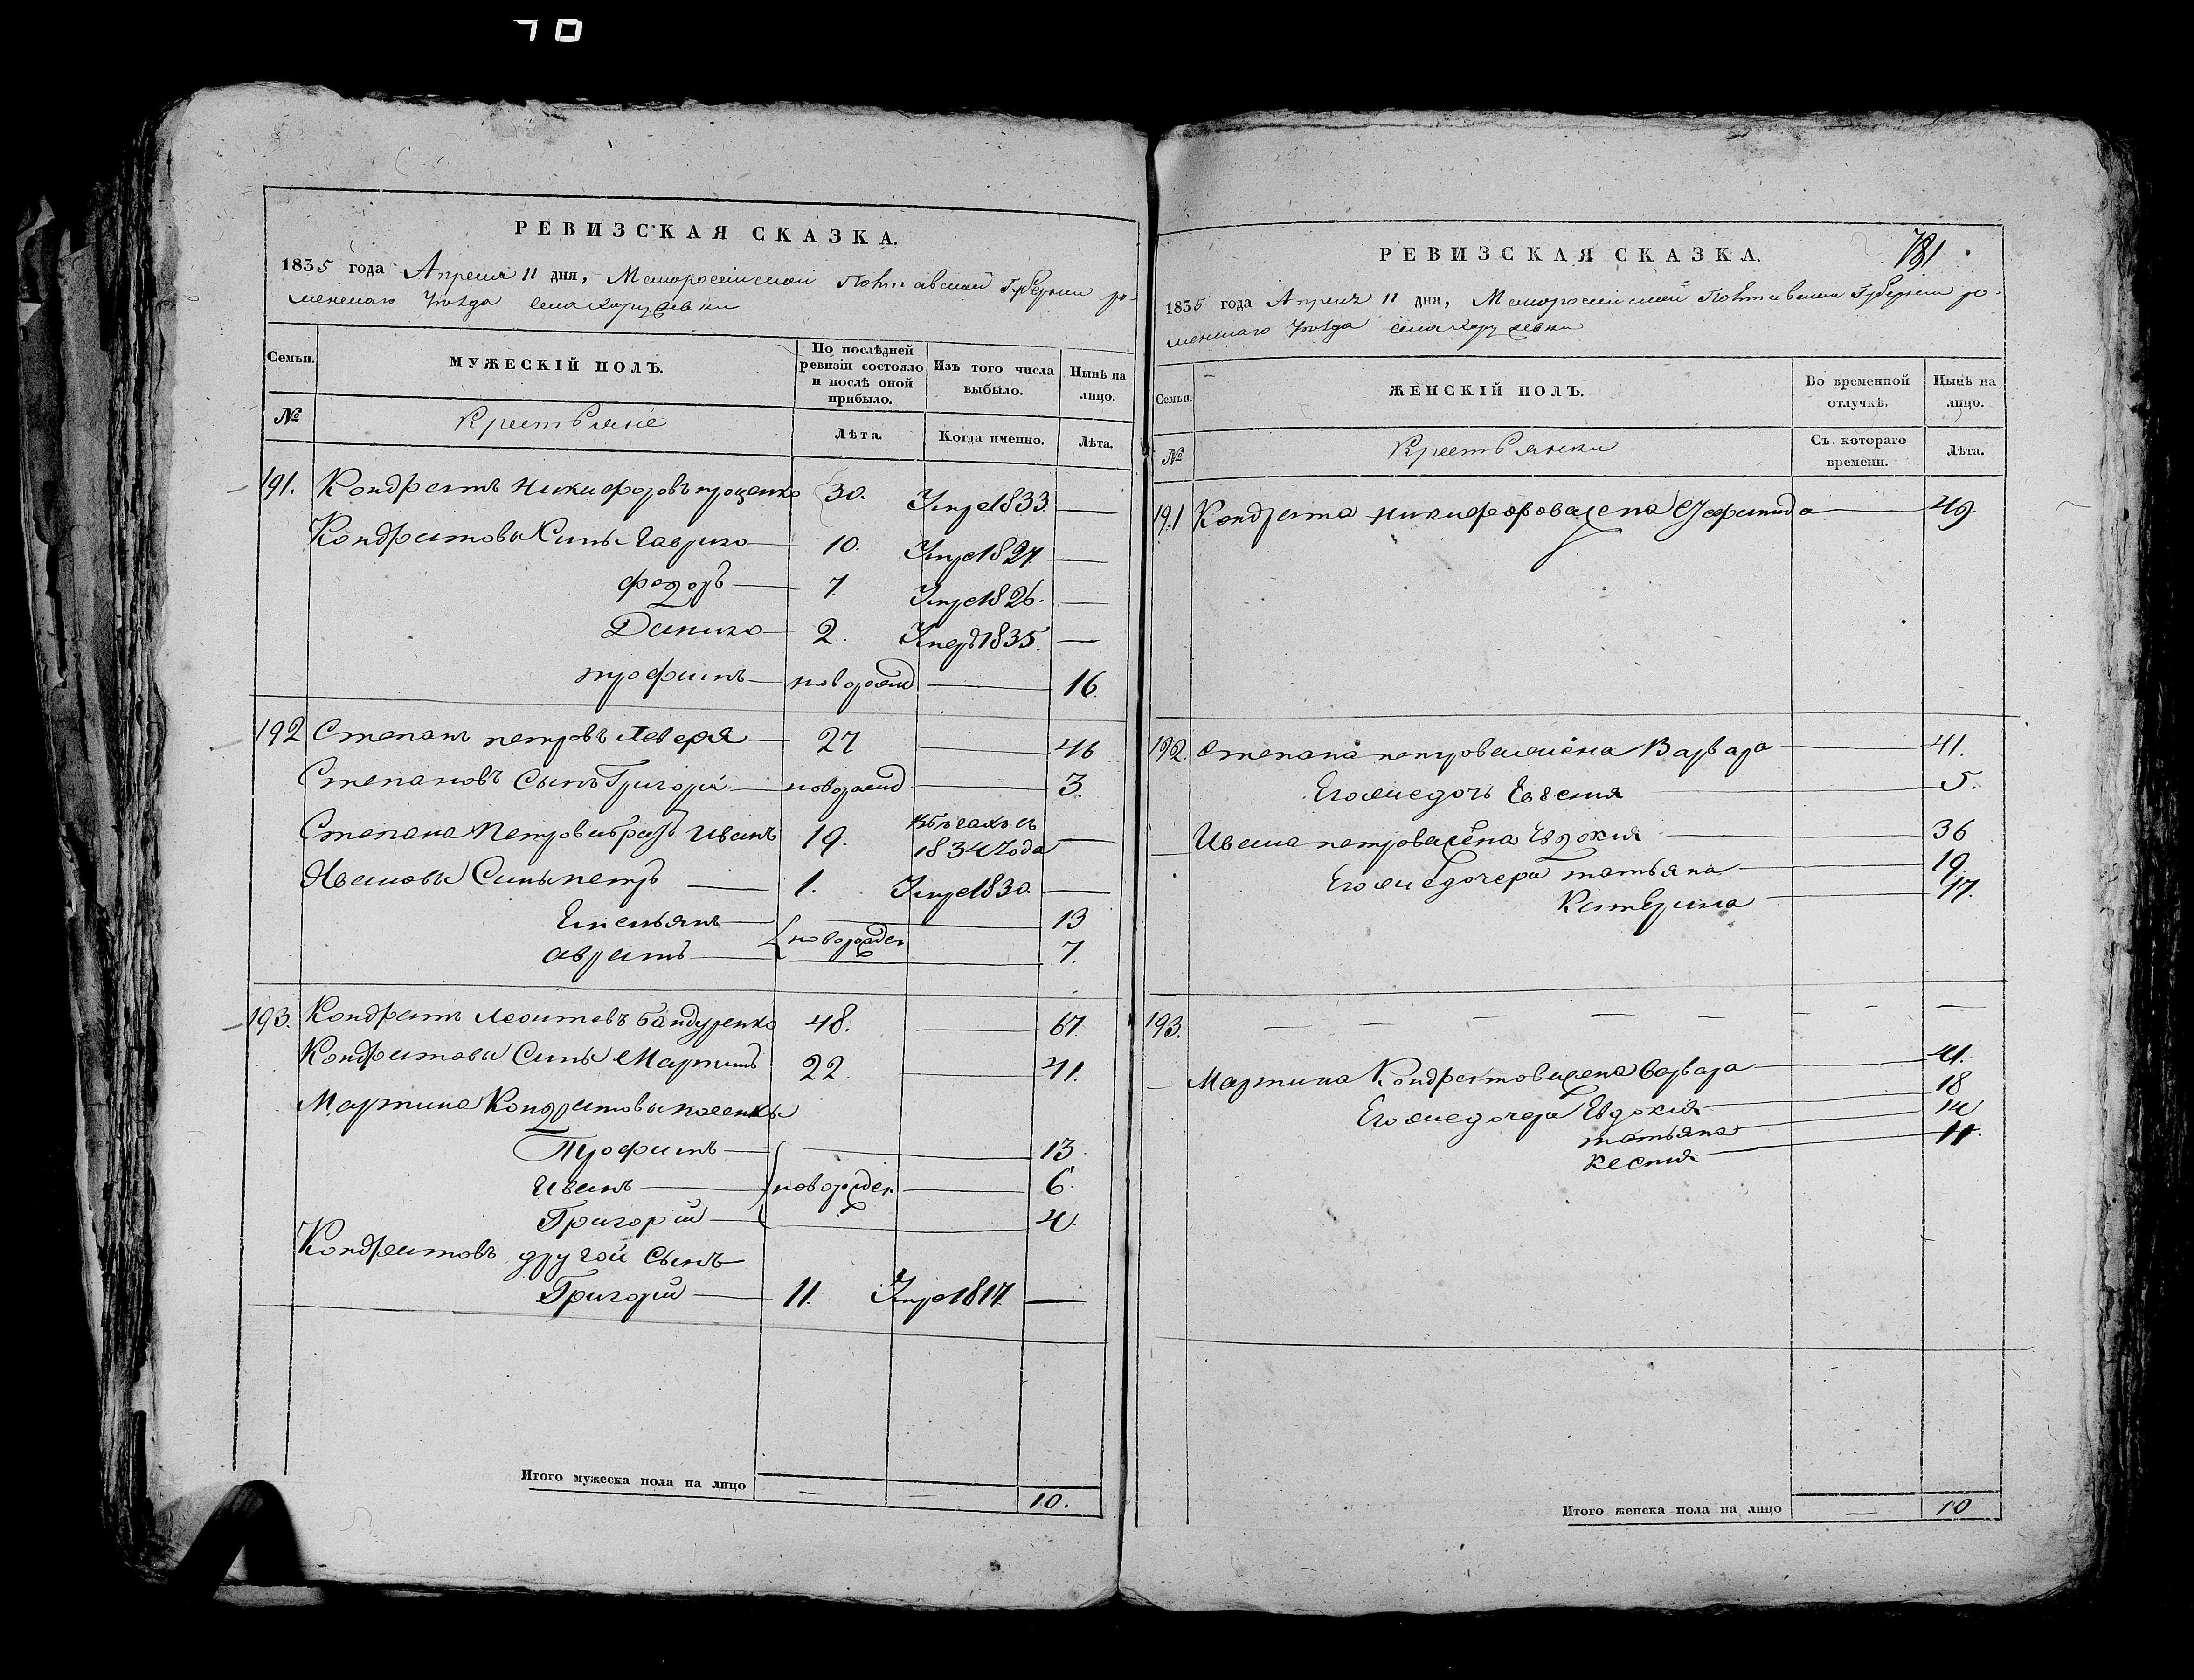 70
РЕВИЗСКАЯ СКАЗКА.
1835 года Апреля 11 дня, Малоросійской Полтавской Губерніи ро-
менскаго Уезда села
Семьи.
МУЖЕСКІЙ ПОЛЪ.
По послѣдней ревизіи состояло и послѣ оной прибыло.
Изъ того числа выбыло.
Нынѣ на лицо.
№
Крестьяне
Лѣта.
Когда именно.
Лѣта.
191. Кондратъ Никифоровъ проценко 30. Умре 1833. —
Кондратовы Сины Гаврило 10. Умре 1827. —
федоръ 7. Умре 1826. —
Данило 2. Умеръ 1835. —
трофимъ новорожд — 16.
192 Степанъ петровъ 27 — 46
Степановъ Сынъ Григорій новорожд — 3.
Степана Петрова братъ Иванъ 19. въ бегахъ съ 1834 года —
Ивановы Сины петръ 1. Умре 1830. —
Емельянъ 13
новорожден
7.
193. Кондратъ Леонтевъ бандуренко 48. — 67.
Кондратовы Сины Мартинъ 22. — 41.
Мартина Кондратовы
Трофимъ 13.
Иванъ новорожден 6.
Григорій 4.
Кондратовъ другой Сынъ
Григорій 11. Умре 1817. —
Итого мужеска пола на лицо — — 10.
РЕВИЗСКАЯ СКАЗКА.
781
1835 года Апреля 11 дня, Малоросійской Полтавской Губерніи ро-
менскаго Уезда села
Семьи.
ЖЕНСКІЙ ПОЛЪ.
Во временной отлучкѣ.
Нынѣ на лицо.
№
Крестьянки
Съ котораго времени.
Лѣта.
191 Кондрата никифорова жена 49
192. Степана петрова жена Варвара 41.
Его же дочь 5.
Ивана петрова жена Евдокия 36
Его же дочери татьяна 19.
Катерина 17.
193. — — — — — — —
Мартина Кондратова жена Варвара 41.
Его же дочери Евдокия 18
татьяна 14
11.
Итого женска пола на лицо — 10